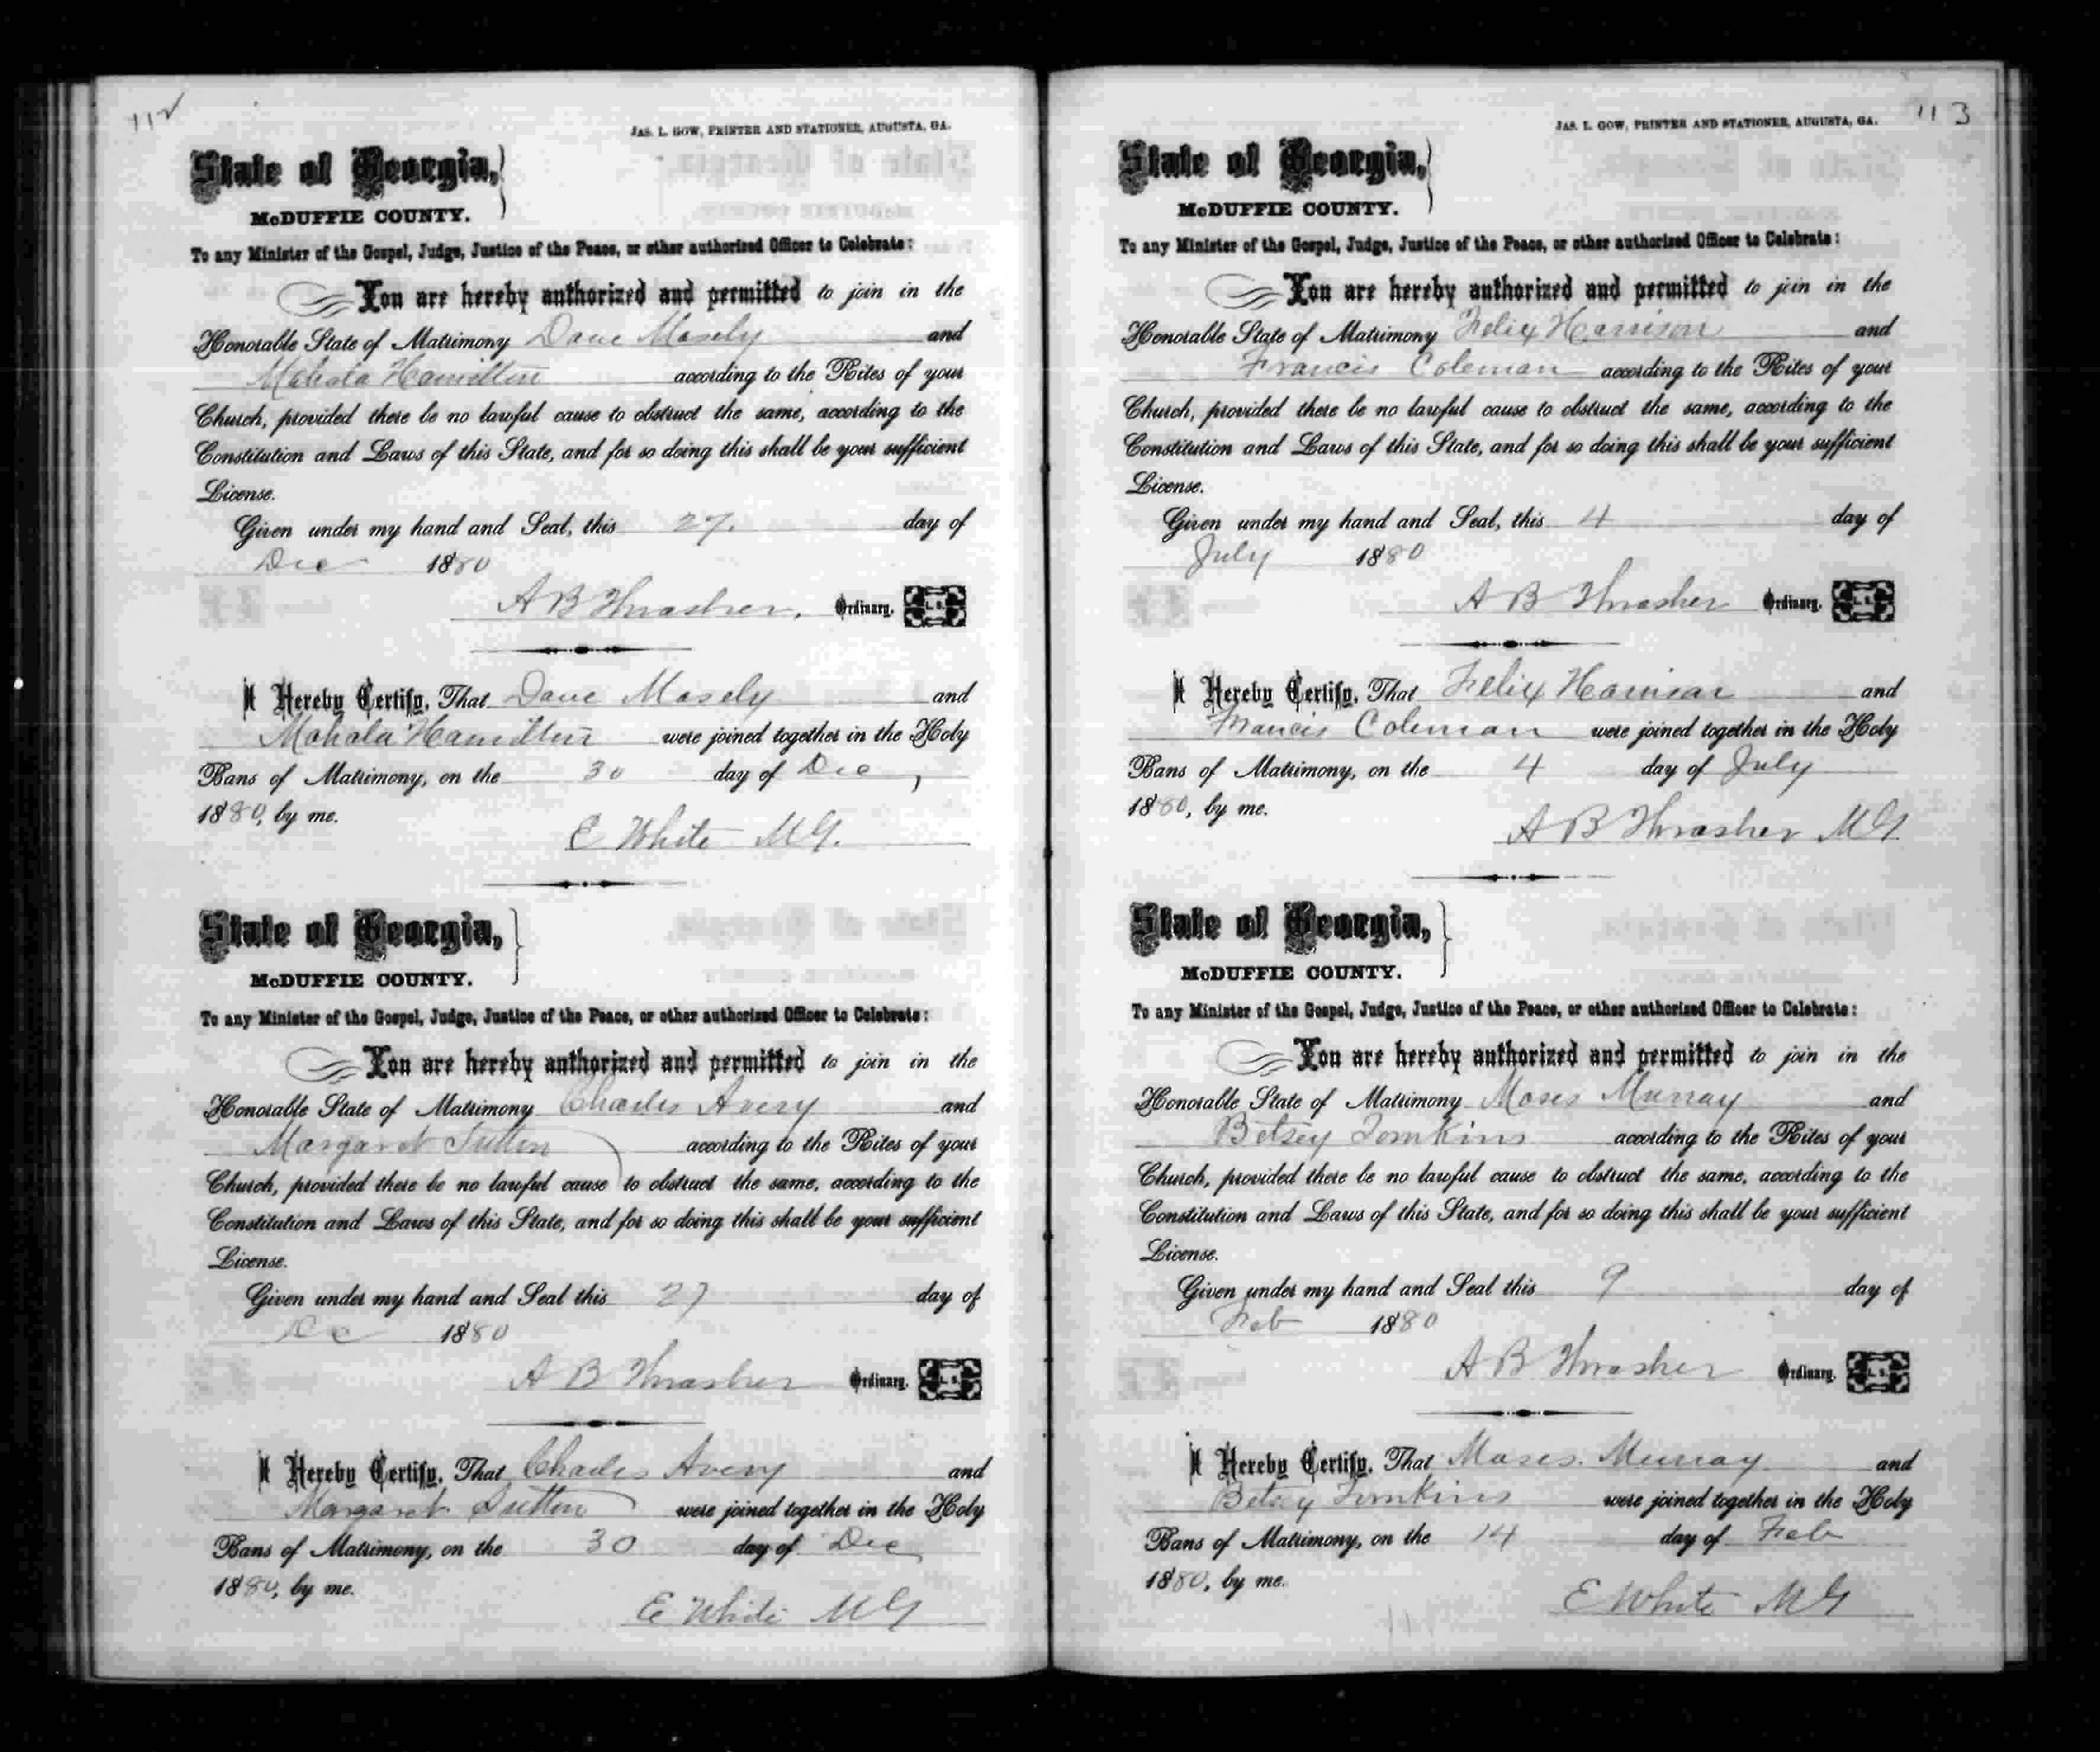 112
JAS. L. GOW, PRINTER AND STATIONER, AUGUSTA, GA.
State of Georgia,
McDUFFIE COUNTY.
To any Minister of the Gospel, Judge, Justice of the Peace, or other authorized Officer to Celebrate:
You are hereby authorized and permitted to join in the
Honorable State of Matrimony Dave Mosely and
Mahala Hamilton according to the Rites of your
Church, provided there be no lawful cause to obstruct the same, according to the
Constitution and Laws of this State, and for so doing this shall be your sufficient
License.
Given under my hand and Seal, this 27. day of
Dec 1880
A B Thrasher, Ordinary. L. S.
I Hereby Certify, That Dave Mosely and
Mahala Hamilton were joined together in the Holy
Bans of Matrimony, on the 30 day of Dec,
1880, by me.
E White MG.
State of Georgia,
McDUFFIE COUNTY.
To any Minister of the Gospel, Judge, Justice of the Peace, or other authorized Officer to Celebrate:
You are hereby authorized and permitted to join in the
Honorable State of Matrimony Charles Avery and
Margaret Sutton according to the Rites of your
Church, provided there be no lawful cause to obstruct the same, according to the
Constitution and Laws of this State, and for so doing this shall be your sufficient
License.
Given under my hand and Seal this 27 day of
Dec 1880
A B Thrasher Ordinary. L. S.
I Hereby Certify, That Charles Avery and
Margaret Sutton were joined together in the Holy
Bans of Matrimony, on the 30 day of Dec
1880, by me.
E White MG
113
JAS. L. GOW, PRINTER AND STATIONER, AUGUSTA, GA.
State of Georgia,
McDUFFIE COUNTY.
To any Minister of the Gospel, Judge, Justice of the Peace, or other authorized Officer to Celebrate:
You are hereby authorized and permitted to join in the
Honorable State of Matrimony Felix Harrison and
Francis Coleman according to the Rites of your
Church, provided there be no lawful cause to obstruct the same, according to the
Constitution and Laws of this State, and for so doing this shall be your sufficient
License.
Given under my hand and Seal, this 4 day of
July 1880
A B Thrasher Ordinary. L. S.
I Hereby Certify, That Felix Harrison and
Francis Coleman were joined together in the Holy
Bans of Matrimony, on the 4 day of July
1880, by me.
A B Thrasher MG
State of Georgia,
McDUFFIE COUNTY.
To any Minister of the Gospel, Judge, Justice of the Peace, or other authorized Officer to Celebrate:
You are hereby authorized and permitted to join in the
Honorable State of Matrimony Moses Murray and
Betsey Tomkins according to the Rites of your
Church, provided there be no lawful cause to obstruct the same, according to the
Constitution and Laws of this State, and for so doing this shall be your sufficient
License.
Given under my hand and Seal this 9 day of
Feb 1880
A B Thrasher Ordinary. L. S.
I Hereby Certify, That Moses Murray and
Betsey Tomkins were joined together in the Holy
Bans of Matrimony, on the 14 day of Feb
1880, by me.
E White MG